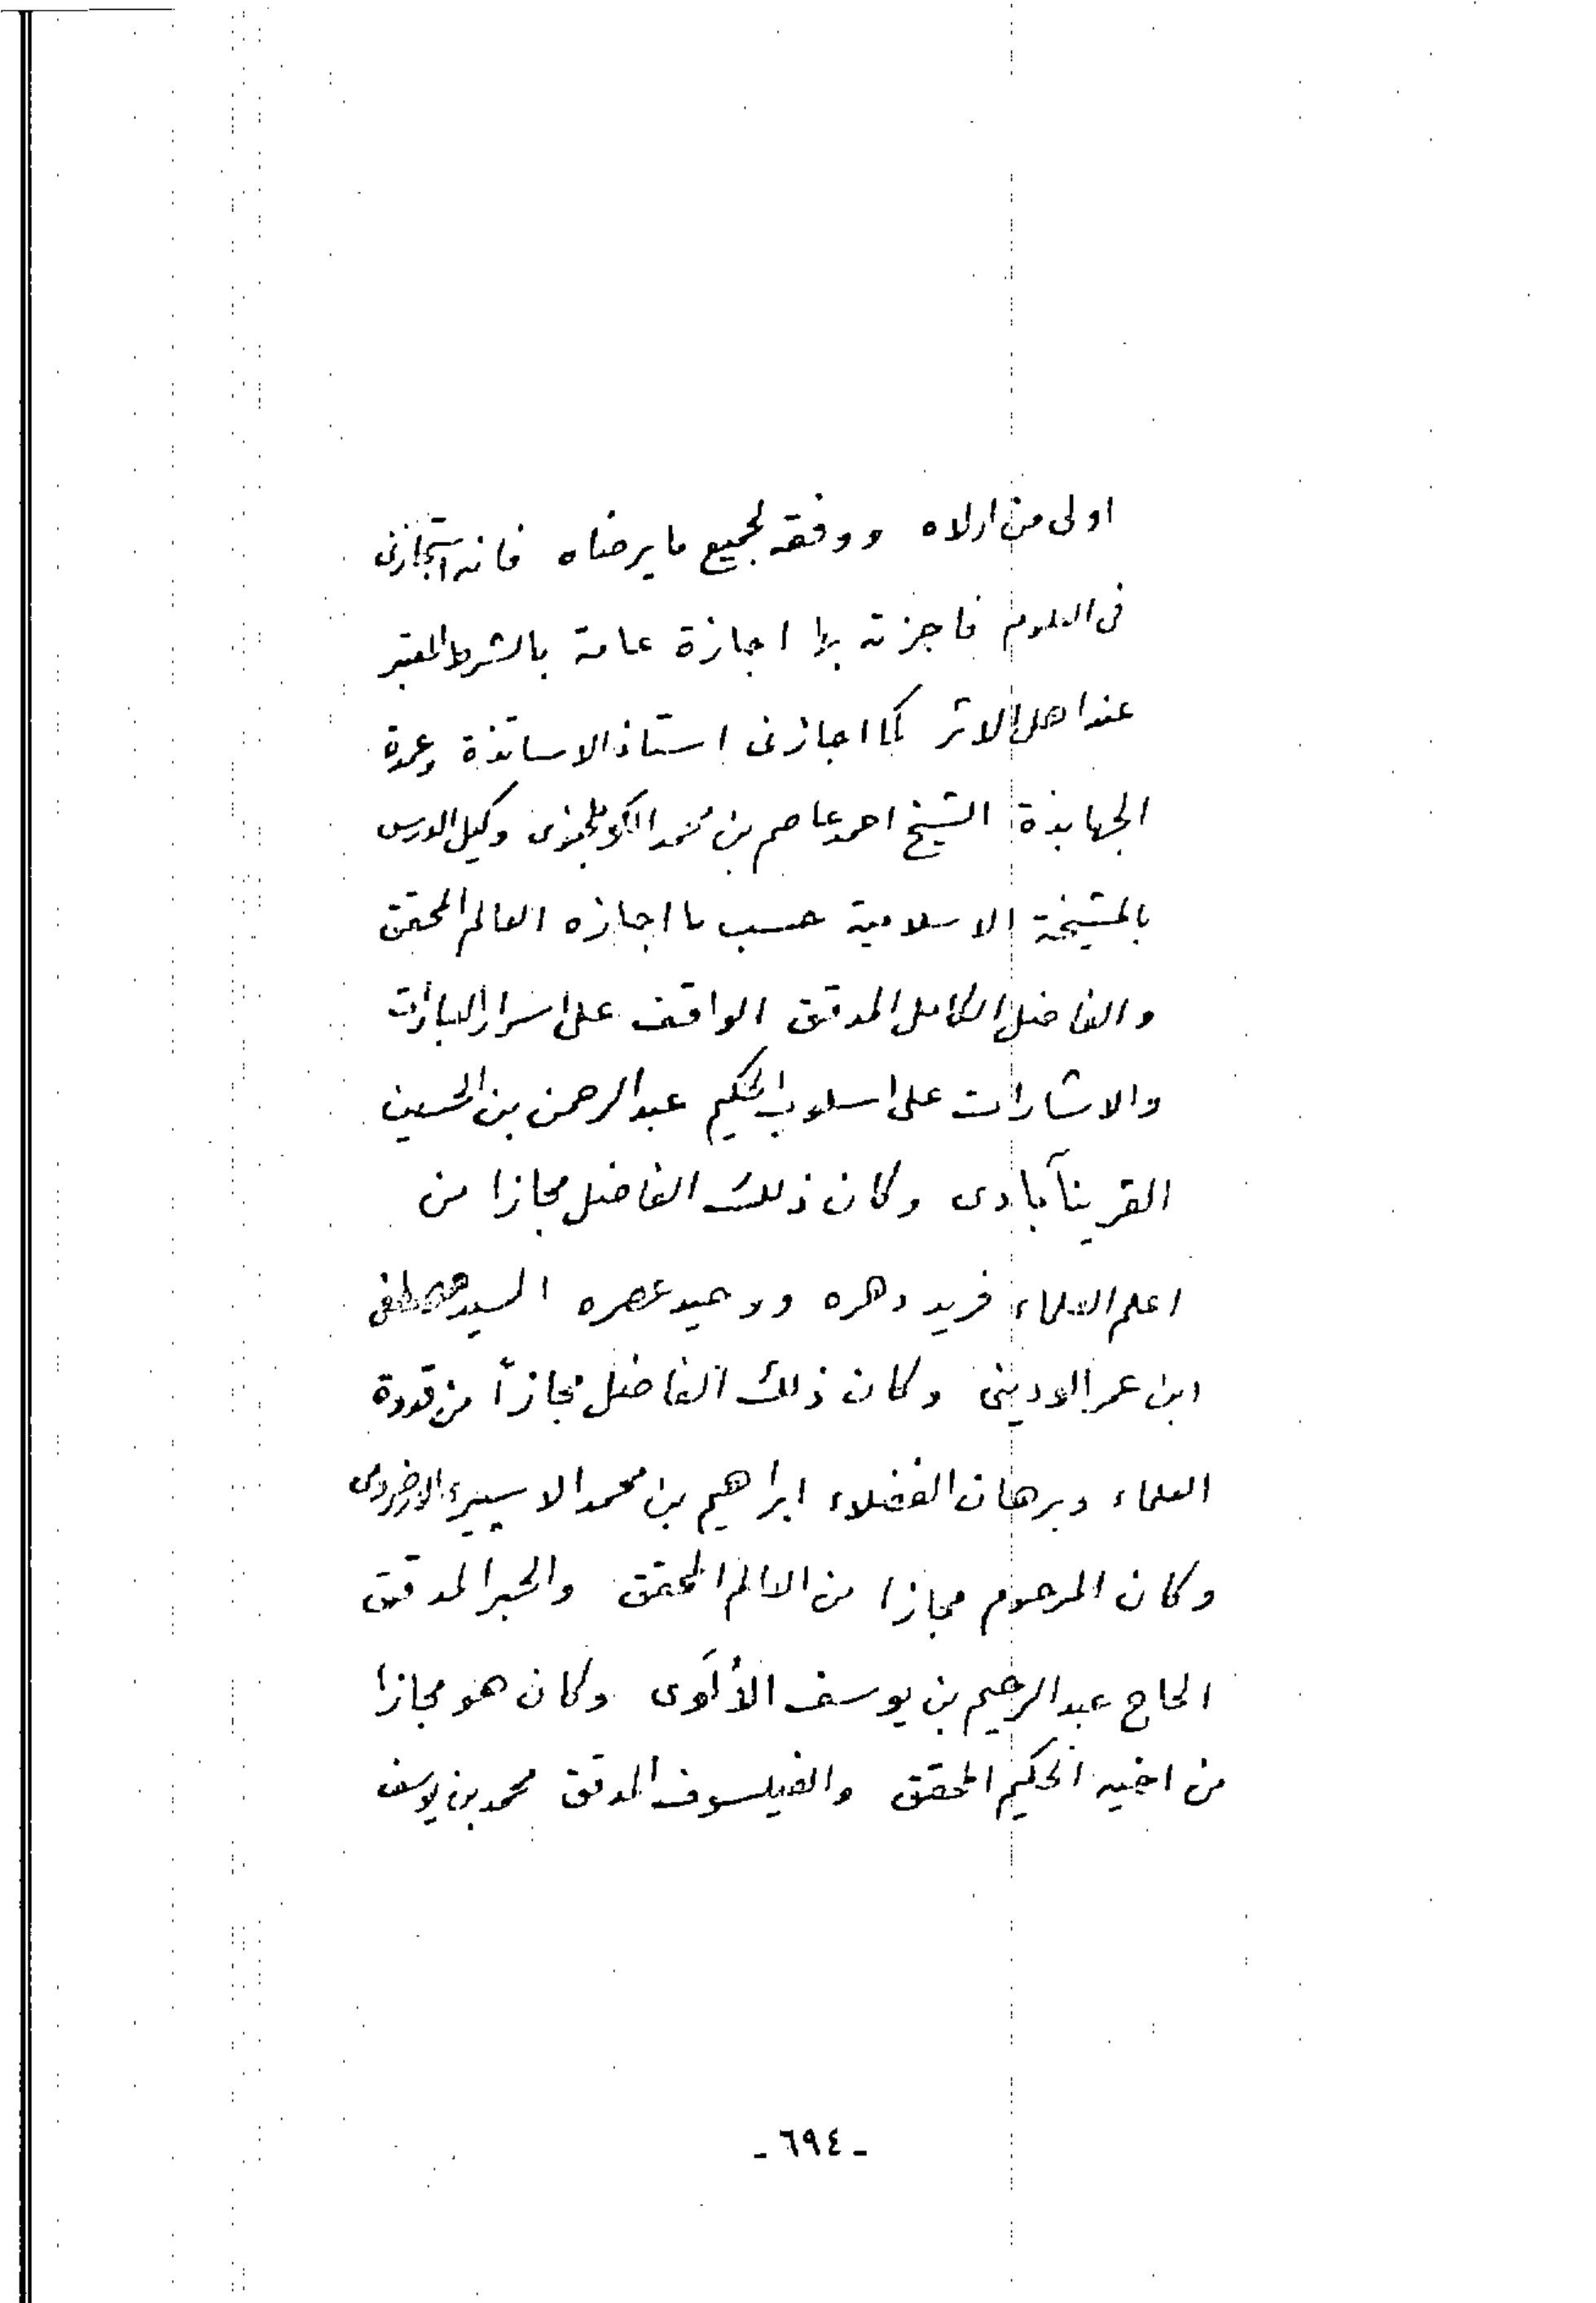 اولى من اولاه ووفقه لجميع ما يرضاه فانه استجازنى
فى العلوم فاجزته بها اجازة عامة بالشرط المعتبر
عند اهل الاثر كما اجازنى استاذ الاساتذة وعمدة
الجهابذة الشيخ احمد عاصم بن محمد الكوملجنوى وكيل الدرس
بالمشيخة الاسلامية حسب ما اجازه العالم المحقق
والفاضل الكامل المدقق الواقف على اسرار العبارات
والاشارات على اسلوب الحكيم عبد الرحمن بن الحسين
القرينآبادى وكان ذلك الفاضل مجازا من
اعلم العلماء فريد دهره ووحيد عصره السيد مصطفى
ابن عمر الودينى وكان ذلك الفاضل مجازاً من قدوة
العلماء وبرهان الفضلاء ابراهيم بن محمد الاسپيرى
وكان المرحوم مجازا من العالم المحقق والحبر المدقق
الحاج عبد الرحيم بن يوسف الأُلَوى وكان هو مجازا
من اخيه الحكيم المحقق والفيلسوف المدقق محمد بن يوسف
ـ ٦٩٤ ـ